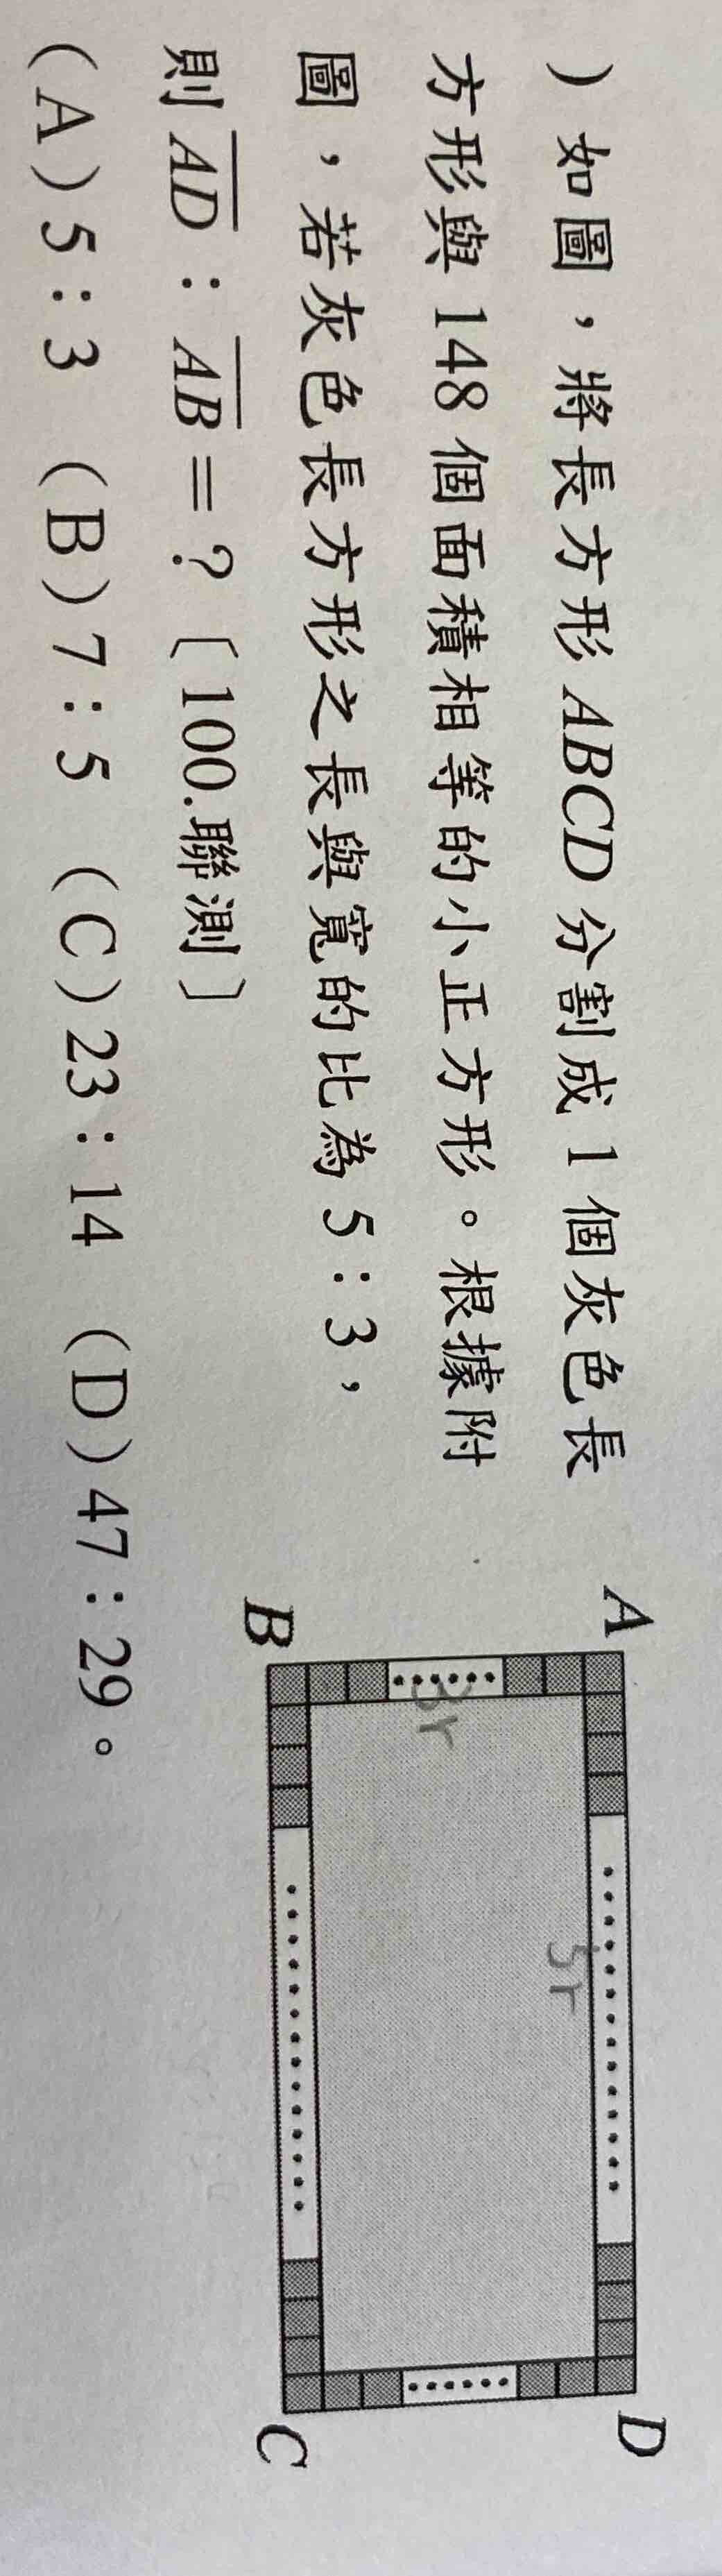 ）如圖，將長方形 ABCD 分割成 1 個灰色長
方形與 148 個面積相等的小正方形。根據附
圖，若灰色長方形之長與寬的比為 5：3，
則 AD：AB＝？〔100.聯測〕
(A) 5：3 (B) 7：5 (C) 23：14 (D) 47：29。
A
D
5r
3r
B
C